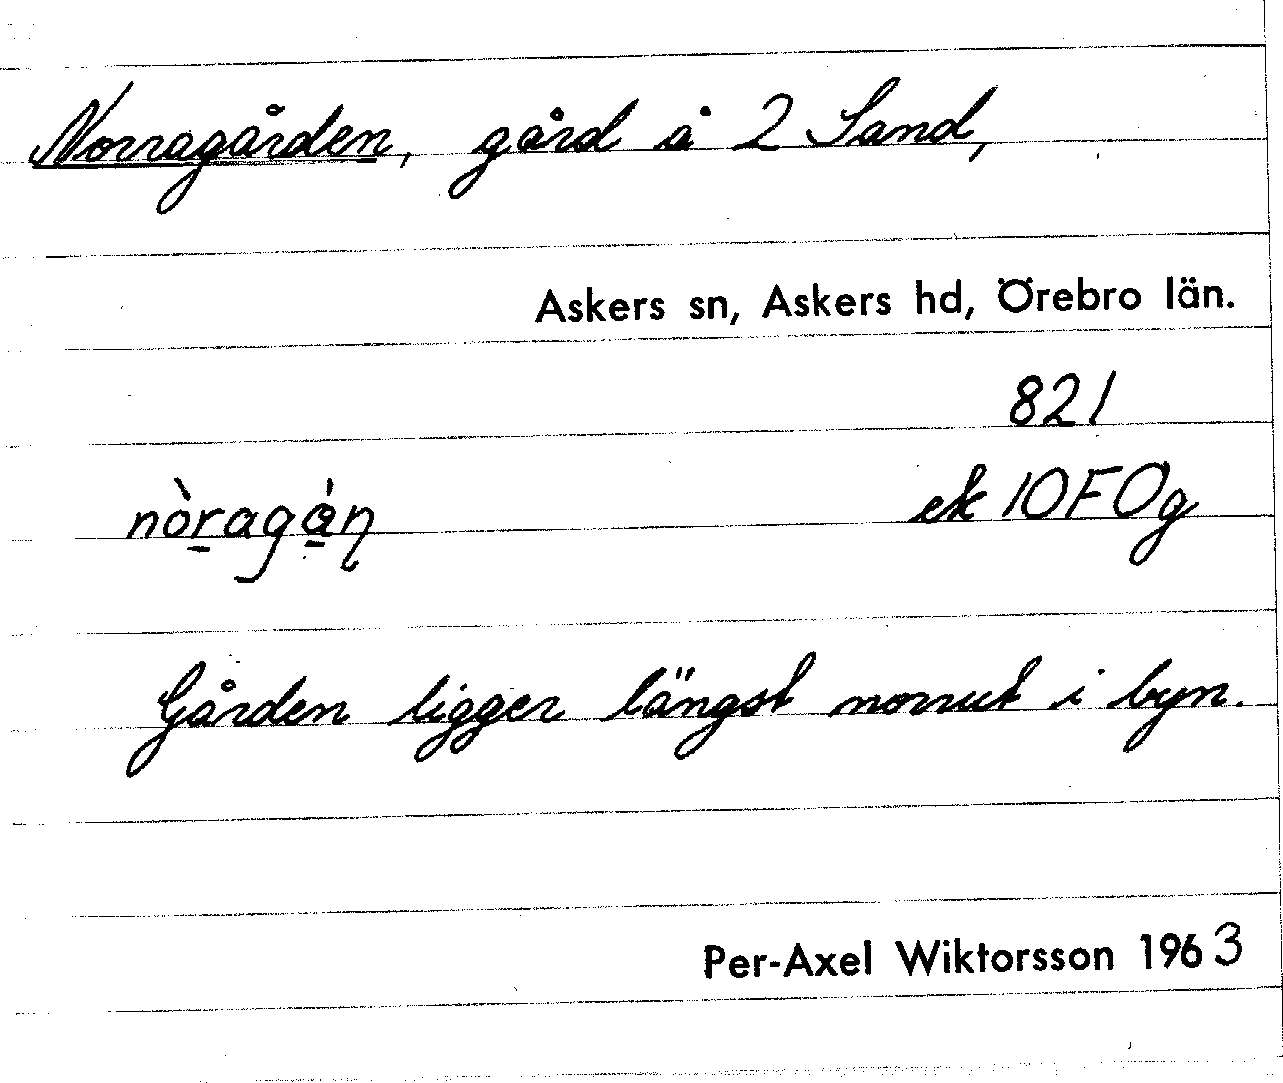 Norragården, gård å 2 Sand,
Askers sn, Askers hd, Örebro län.
821
nòr̠agá̠ɳ ek 10F0g
Gården ligger längst norrut i byn.
Per-Axel Wiktorsson 1963